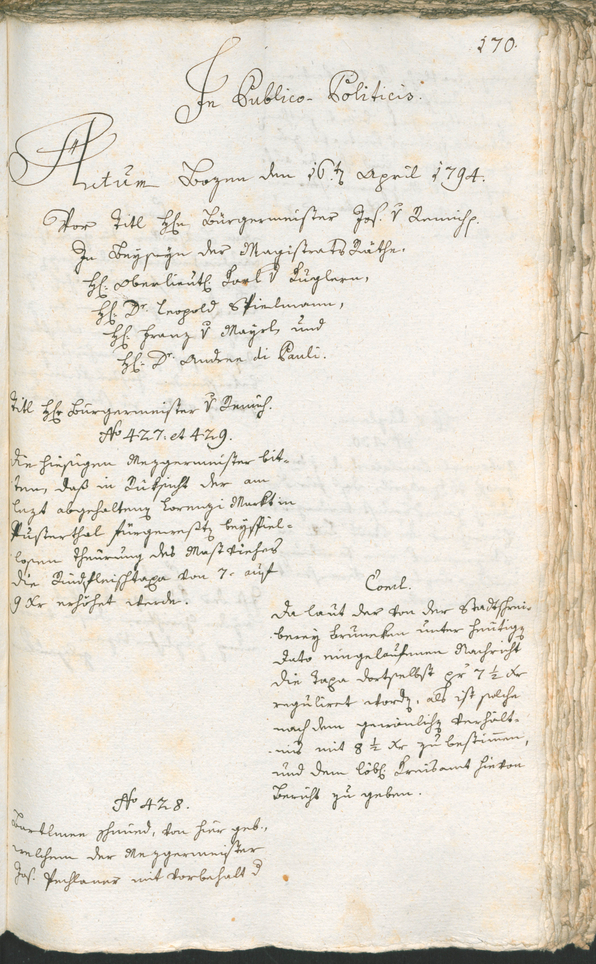 170.
In Publico-Politicis.
Actum Bozen den 16t April 1794.
Vor Titl Hhn Bürgermeister Jos. v Remich.
In Beyseyn der Magistrats Räthe,
HH. Oberlieut Karl v Kuglern,
HH. Dr. Leopold Spielmann,
HH. Franz v Mayrl, und
HH. Dr. Andree di Pauli.
Titl Hhr Bürgermeister v Remich.
No 427. et 429.
Die hiesigen Mezgermeister bit-
ten, daß in Rüksicht der am
lezt abgehalteng Lorenzi Markt in
Pusterthal fürgewestg beyspiel-
losen Theürung des Mastviehes
die Rindfleischtaxa von 7. auf
9 Xr erhöhet werde.
Concl.
Da laut der von der Stadtschrei-
berey Bruneken unter heütigg
Dato eingeloffenen Nachricht
die Taxa dortselbst pr 7 1/2 Xr
regulirt wordg, als ist solche
nach dem gewönlichg Verhält-
nis mit 8 1/2 Xr zu bestimen,
und dem löbl. Kreisamt hievon
Bericht zu geben.
No 428.
Bartlmee Schmied, von hier geb.,
welchem der Mezgermeister
Jos. Pechlaner mit Vorbehalt d